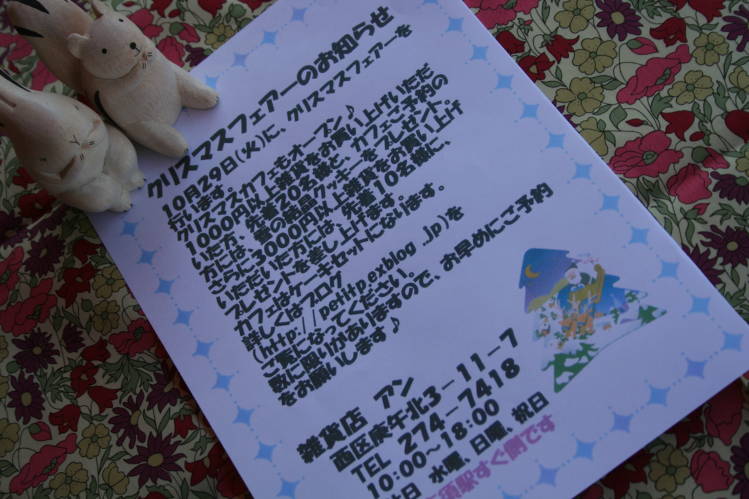 クリスマスフェアーのお知らせ
10月29日(火)に、クリスマスフェアーを
行います。
クリスマスカフェもオープン♪
1000円以上雑貨をお買い上げいただ
いた方、先着20名様と、カフェご予約の
方には、雪の結晶クッキーをプレゼント。
さらに3000円以上雑貨をお買い上げ
いただいた方には、先着10名様に、
プレゼントを差し上げます。
カフェはケーキセットになります。
詳しくはブログ
(http://petitp.exblog.jp)を
ご覧になってください。
数に限りがありますので、お早めにご予約
をお願いします♪
雑貨店 アン
西区庚午北3-11-7
TEL 274-7418
10:00~18:00
休日 水曜、日曜、祝日
須駅すぐ側です